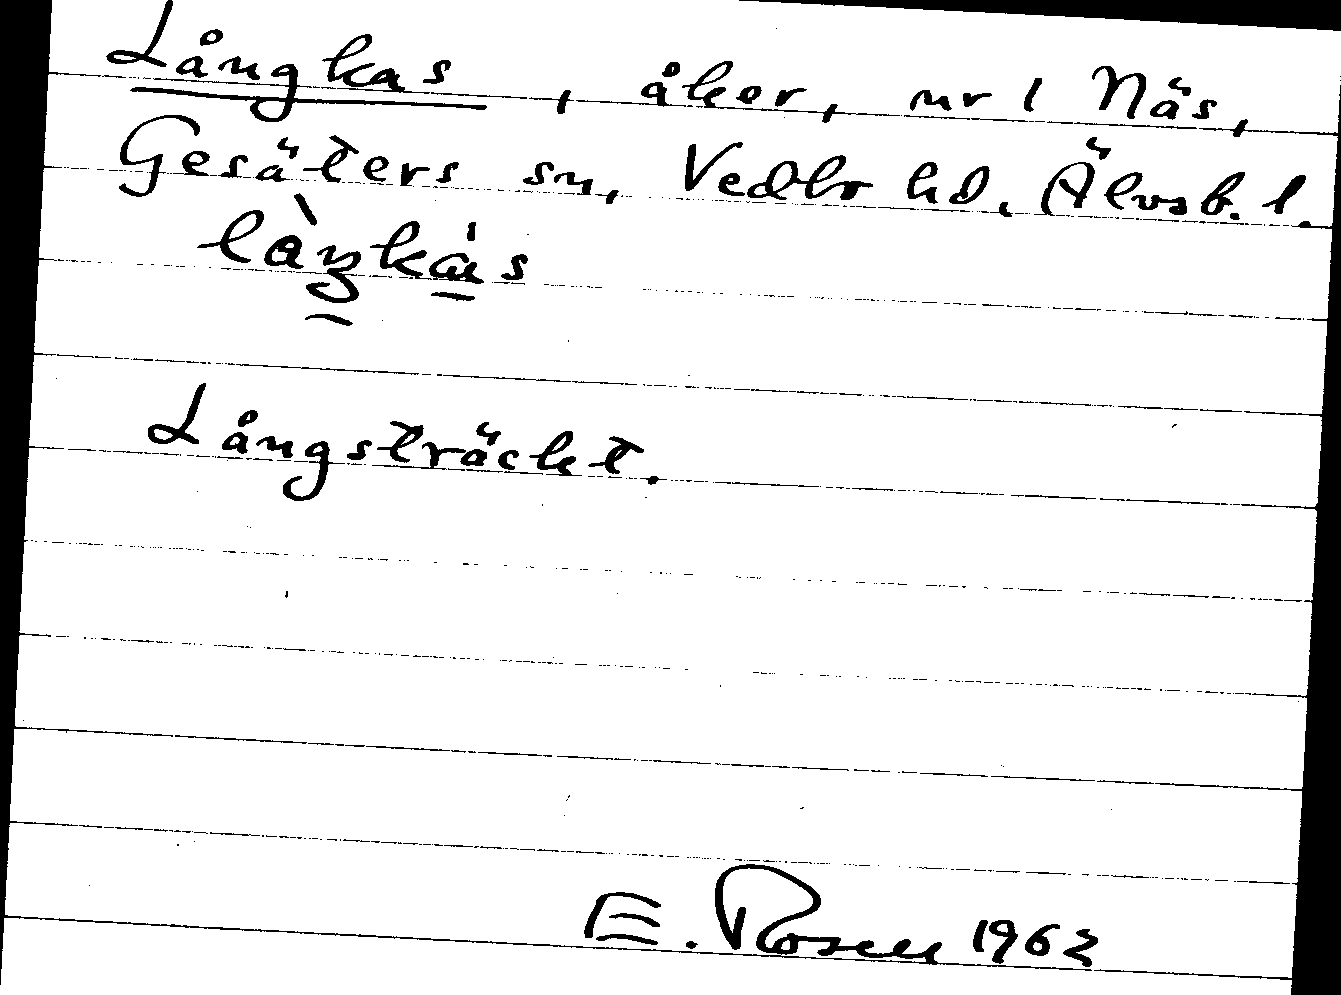 Långkas, åker, nr 1 Näs,
Gesäters sn, Vedbo hd. Älvsb. l.
làŋkás
Långsträckt.
E. Rosell 1962